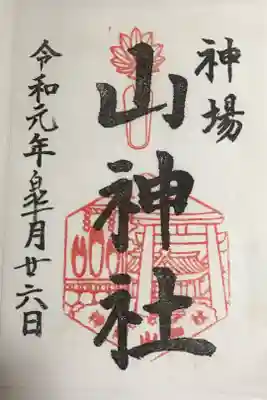 神場
山神社
令和元年皐月廿六日